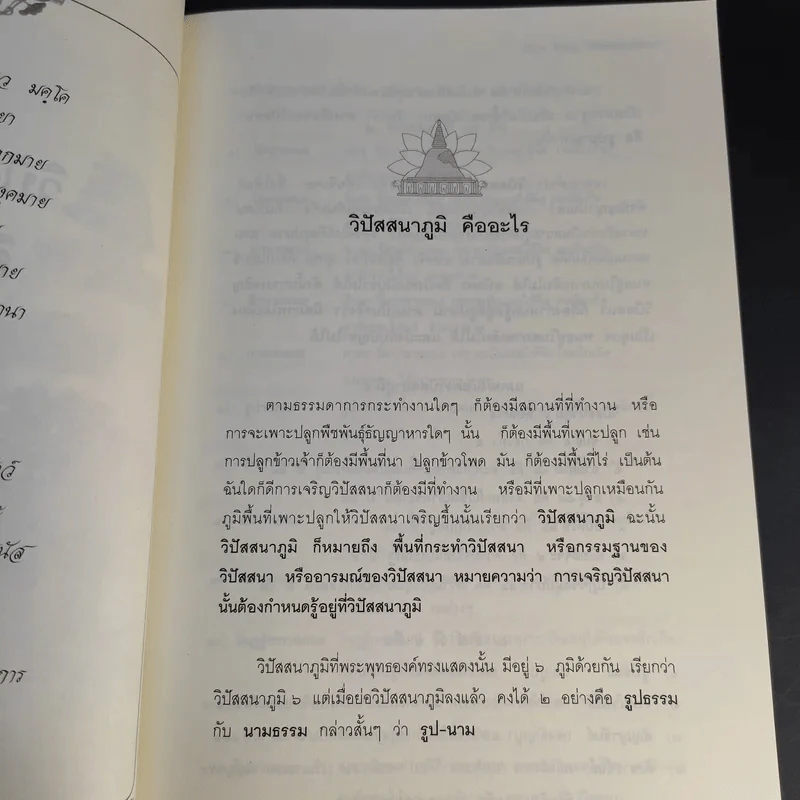 มคฺโค
วิปัสสนาภูมิ คืออะไร
ตามธรรมดาการกระทำงานใดๆ ก็ต้องมีสถานที่ที่ทำงาน หรือ
การจะเพาะปลูกพืชพันธุ์ธัญญาหารใดๆ นั้น ก็ต้องมีพื้นที่เพาะปลูก เช่น
การปลูกข้าวเจ้าก็ต้องมีพื้นที่นา ปลูกข้าวโพด มัน ก็ต้องมีพื้นที่ไร่ เป็นต้น
ฉันใดก็ดีการเจริญวิปัสสนาก็ต้องมีที่ทำงาน หรือมีที่เพาะปลูกเหมือนกัน
ภูมิพื้นที่เพาะปลูกให้วิปัสสนาเจริญขึ้นนั้นเรียกว่า วิปัสสนาภูมิ ฉะนั้น
วิปัสสนาภูมิ ก็หมายถึง พื้นที่กระทำวิปัสสนา หรือกรรมฐานของ
วิปัสสนา หรืออารมณ์ของวิปัสสนา หมายความว่า การเจริญวิปัสสนา
นั้นต้องกำหนดรู้อยู่ที่วิปัสสนาภูมิ
วิปัสสนาภูมิที่พระพุทธองค์ทรงแสดงนั้น มีอยู่ ๖ ภูมิด้วยกัน เรียกว่า
วิปัสสนาภูมิ ๖ แต่เมื่อย่อวิปัสสนาภูมิลงแล้ว คงได้ ๒ อย่างคือ รูปธรรม
กับ นามธรรม กล่าวสั้นๆ ว่า รูป-นาม